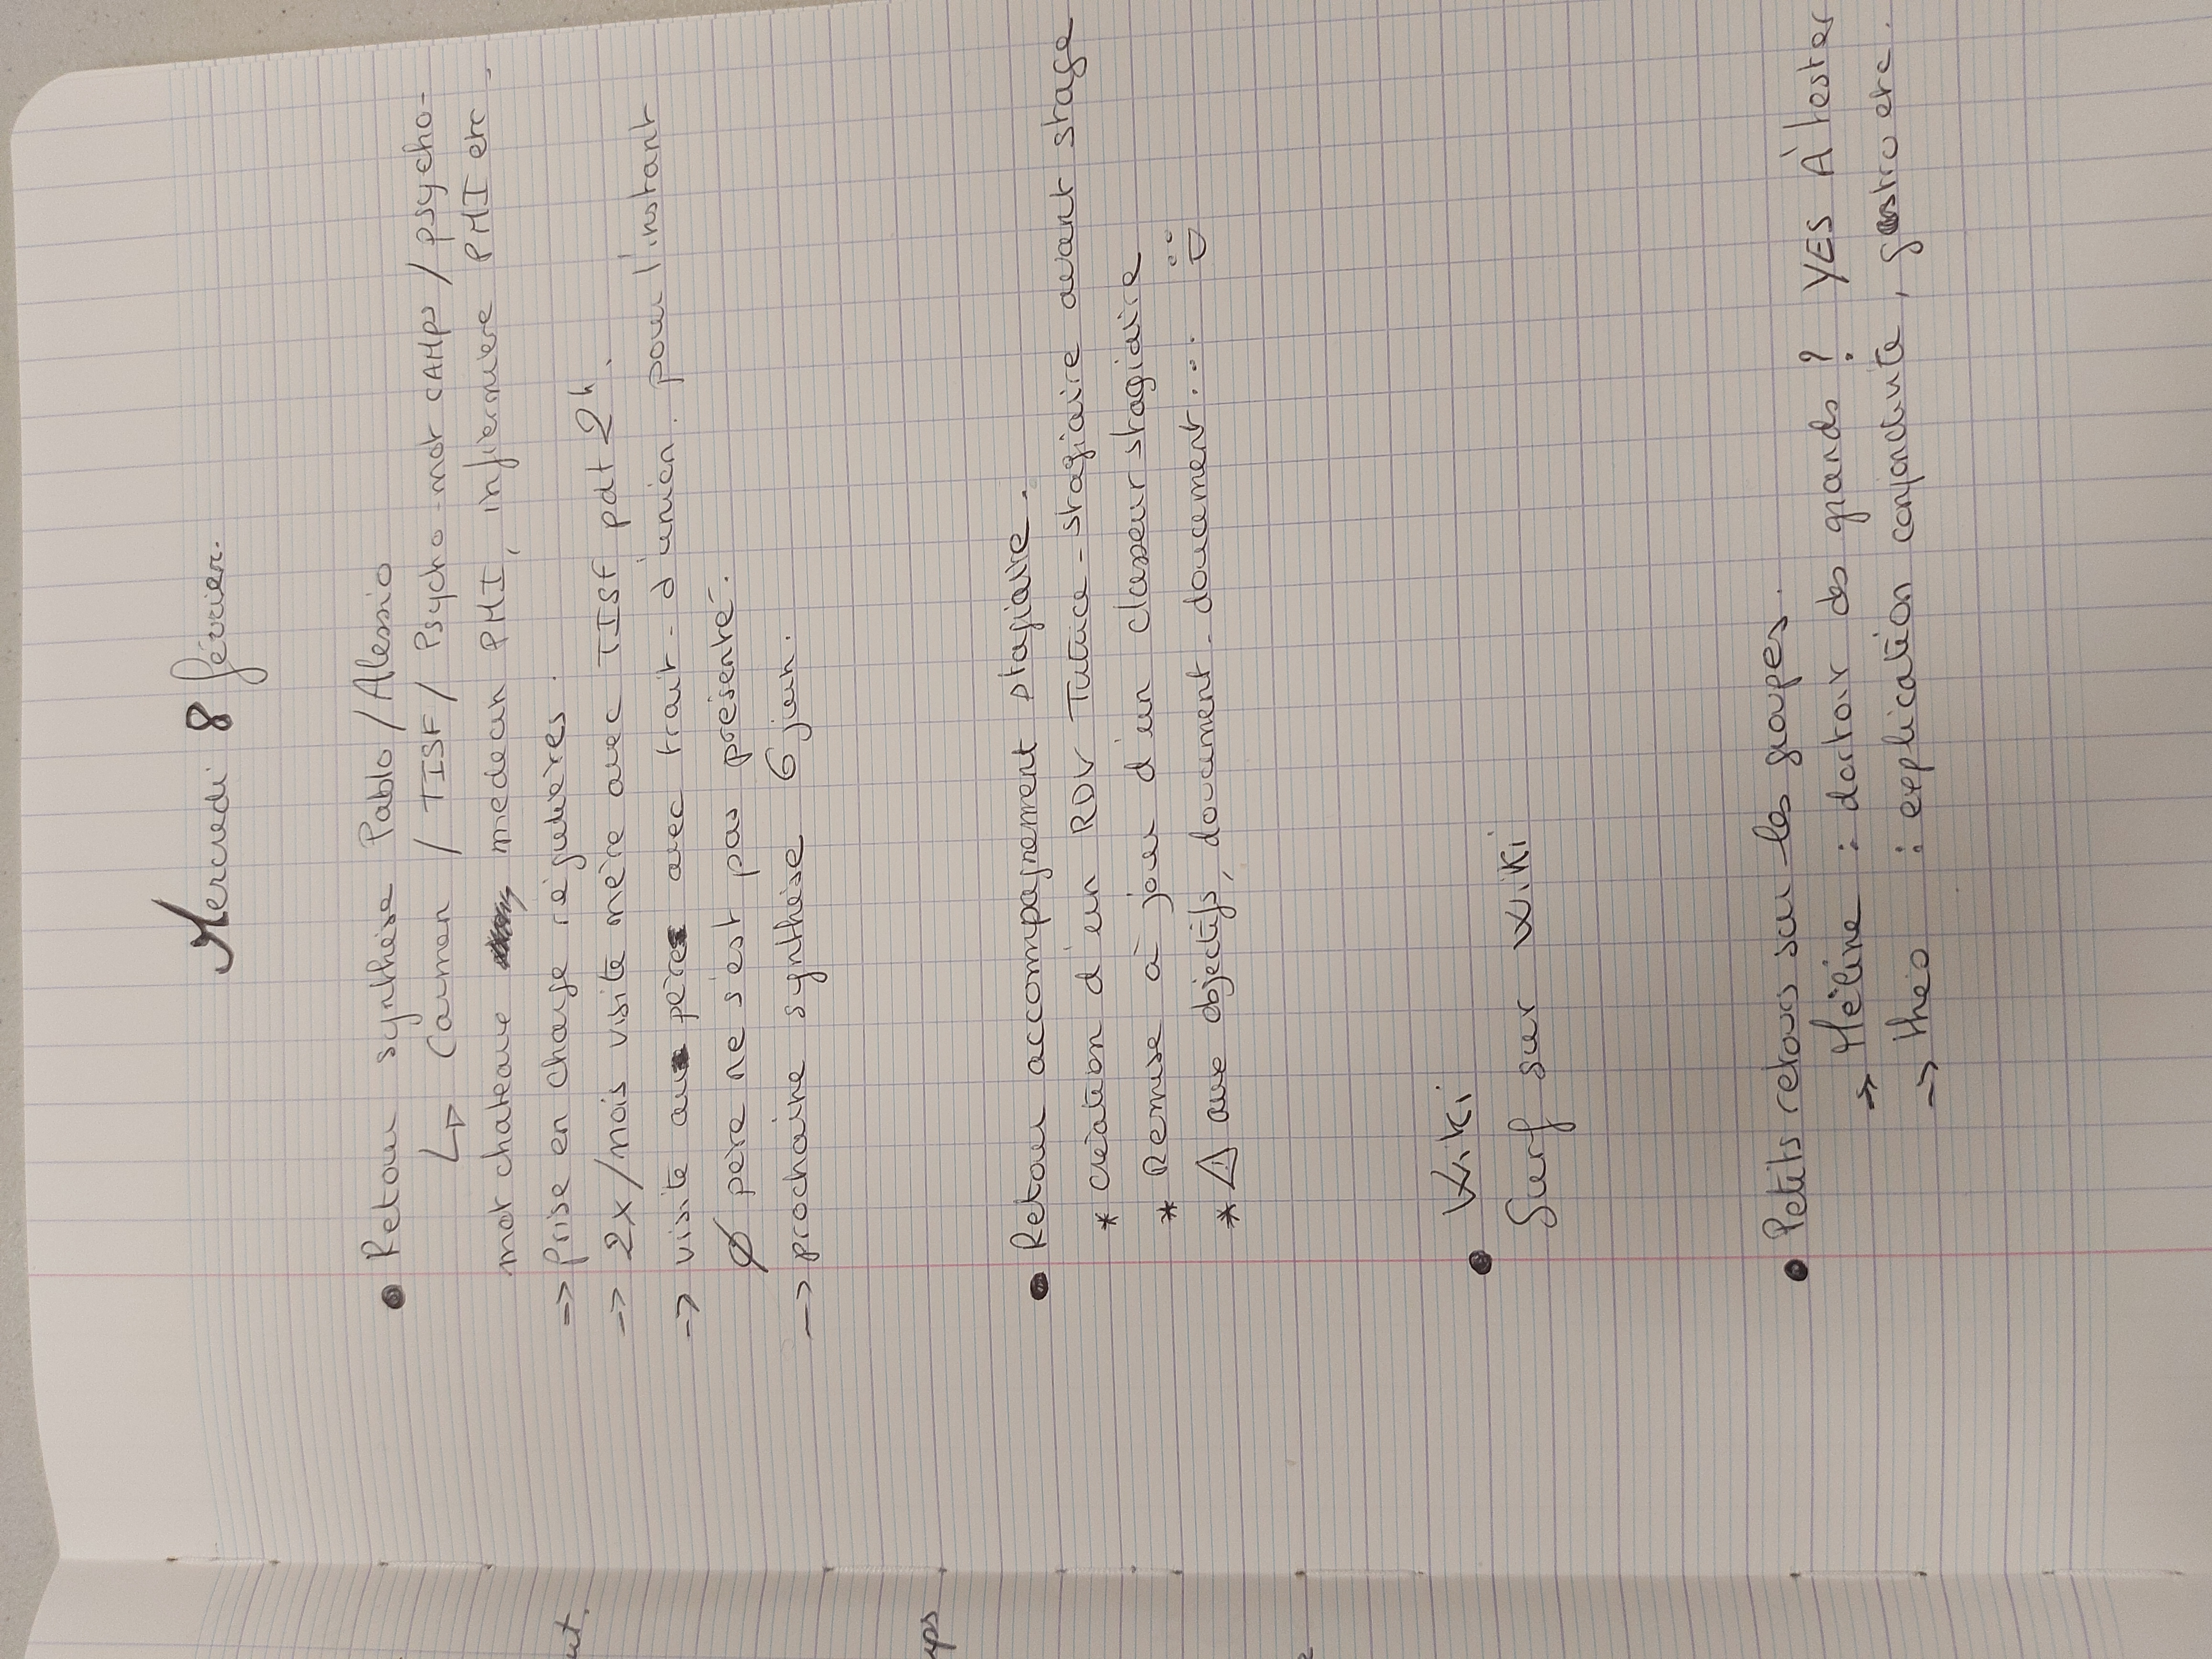 Mercredi 8 février.
● Retour synthèse Pablo / Alessio
↳ Carmen / TISF / Psycho-mot CAMPS / psycho-
mot chateau medecin PMI, infiermiere PMI etc.
=> Prise en charge régulières.
-> 2x/mois visite mère avec TISF pdt 2h.
-> visite au père avec trait-d'union. pour l'instant
∅ père ne s'est pas présenté.
-> prochaine synthèse 6 juin.
● Retour accompagnement stagiaire.
* création d'un RDV Tutrice-stagiaire avant stage
* Remise à jour d'un classeur stagiaire
* ⚠ aux objectifs, doucement-doucement....
● Wiki
Surf sur wiki
● Petits retours sur les groupes.
-> Héline : dortoir des grands ? YES À tester
-> theo : explication conjonctivite, gastro etc.
ut.
yps
e